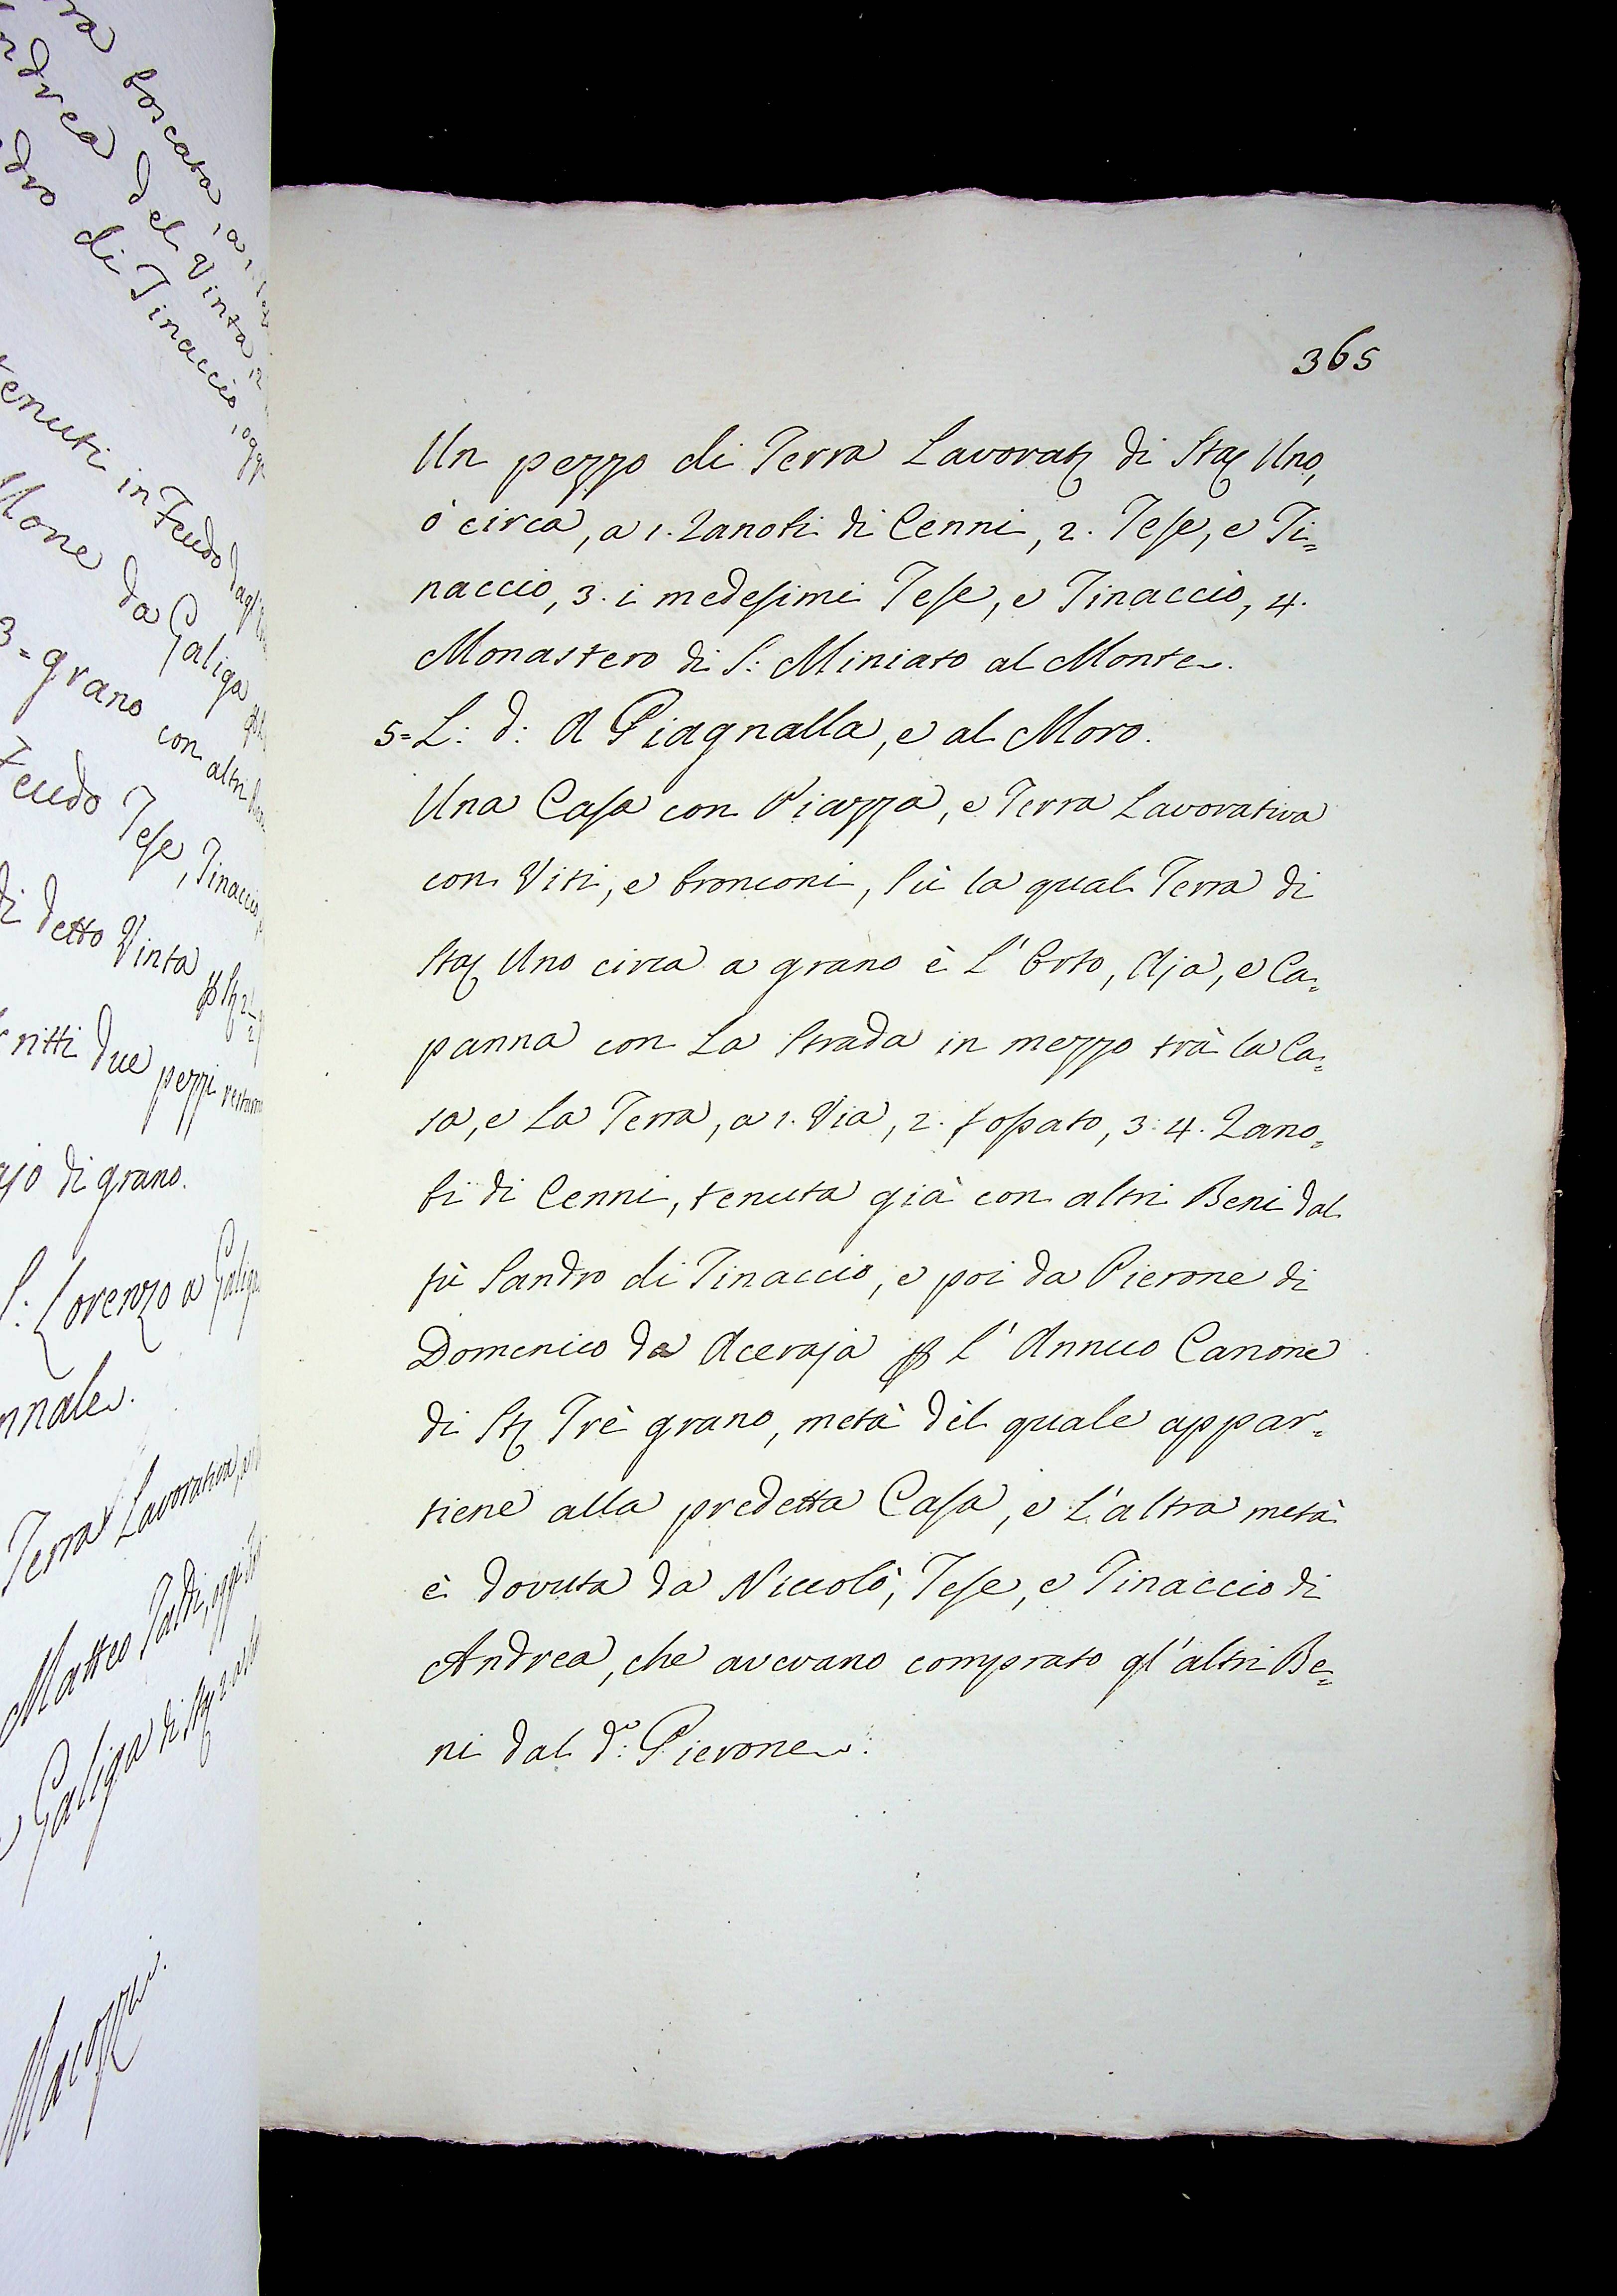 ra boscata, a 1.
ndrea del Vinta, 2
dro di Tinaccio, oggi
tenuti in Feudo dagl'
Mone da Galiga
3= grano con altri
Feudo Tese, Tinaccio,
di detto Vinta
ritti due pezzi
ajo di grano.
S: Lorenzo a Galiga
nnale.
Terra Lavorativa,
Matteo Taddi, oggi
Galiga di Sta 2
Macozze.
365
Un pezzo di Terra Lavorat di Sta Uno,
ó circa, a 1. Zanobi di Cenni, 2. Tese, e Ti=
naccio, 3. i medesimi Tese, e Tinaccio, 4.
Monastero di S: Miniato al Monte.
5= L: d: A Piagnalla, e al Moro.
Una Casa con Piazza, e Terra Lavorativa
con Viti, e bronconi, Sù la qual Terra di
Sta Uno circa a grano è l'Orto, Aja, e Ca=
panna con la Strada in mezzo trà la Ca=
sa, e la Terra, a 1. Via, 2. fossato, 3. 4. Zano=
bi di Cenni, tenuta già con altri Beni dal
fù Sandro di Tinaccio, e poi da Pierone di
Domenico da Aceraja ꝑ l'Annuo Canone
di St Trè grano, metà del quale appar=
tiene alla predetta Casa, e l'altra metà
è dovuta da Niccolò, Tese, e Tinaccio di
Andrea, che avevano comprato gl'altri Be=
ni dal d.º Pierone.